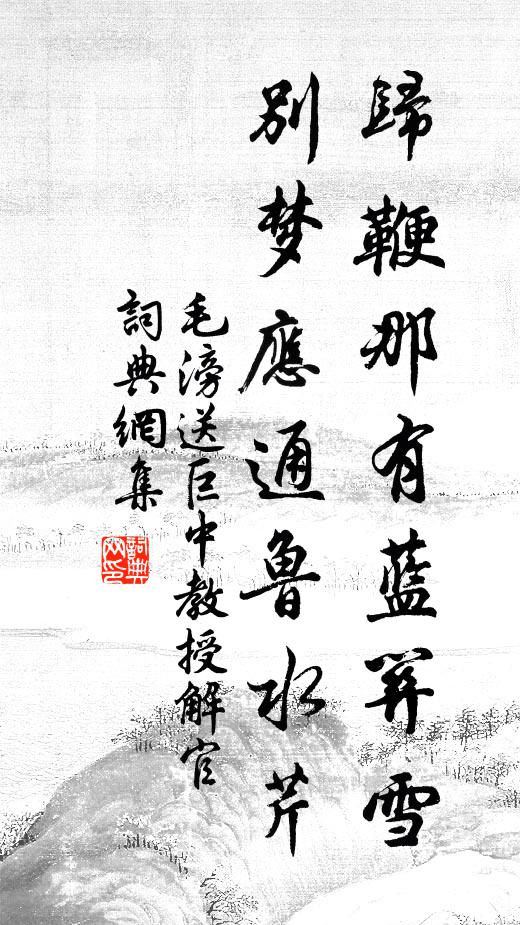 歸鞭那有藍關雪
別梦應通魯水芹
毛滂送巨中教授解官
詞典網集
詞典网印